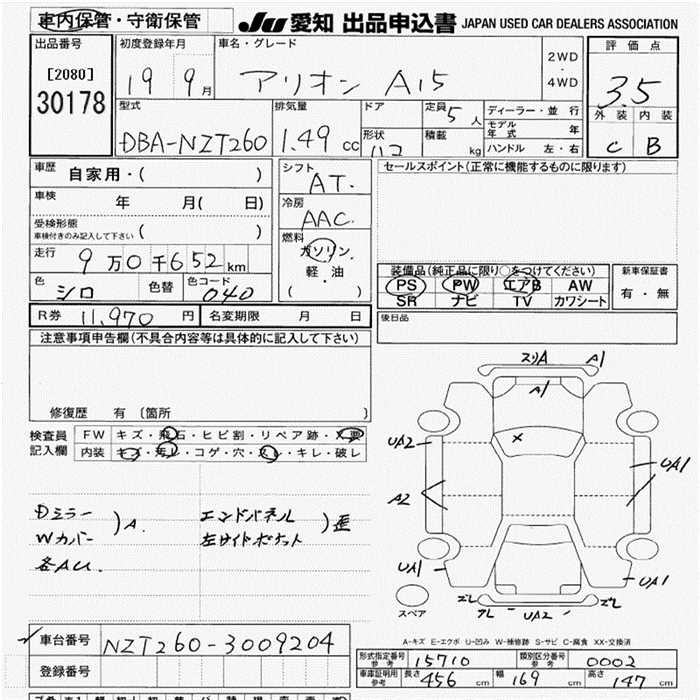 車内保管・守衛保管
JU 愛知 出品申込書 JAPAN USED CAR DEALERS ASSOCIATION
出品番号
[2080]
30178
初度登録年月
19 9月
車名・グレード
アリオン A15
2WD
・
4WD
評価点
3.5
外装 内装
C B
型式
DBA-NZT260
排気量
1.49 cc
ドア
形状
ハコ
定員 5人
積載 kg
ディーラー・並行
モデル年式 年
ハンドル 左・右
車歴 自家用・( )
車検 年 月( 日)
受検形態
車検付きのみ記入して下さい ( )
走行 9万0千652km
色 シロ 色替 色コード 040
シフト
AT.
冷房
AAC.
燃料
ガソリン
軽・油
( )
セールスポイント(正常に機能するものに限ります)
装備品(純正品に限り○をつけてください)
PS PW エアB AW
SR ナビ TV カワシート
新車保証書
有・無
後日品
R券 11,970 円 名変期限 月 日
注意事項申告欄(不具合内容等は具体的に記入して下さい)
修復歴 有〔箇所 〕
検査員
記入欄
FW キズ・飛石・ヒビ割・リペア跡・X要
内装 キズ・汚レ・コゲ・穴・スレ・キレ・破レ
Dミラー
Wカバー
)A.
各AU.
エンドパネル
左サイドポケット
)歪
スリA A1
A1
UA2
UA1
A2
UA1
UA1
ズレ
ズレ
UA2
スペア
A-キズ E-エクボ U-凹み W-補修跡 S-サビ C-腐食 XX-交換済
車台番号 NZT260-3009204
登録番号
形式指定番号
参考
15710
類別区分番号
参考
0002
車庫証明用
参考
長さ 456 cm 幅 169 cm 高さ 147 cm